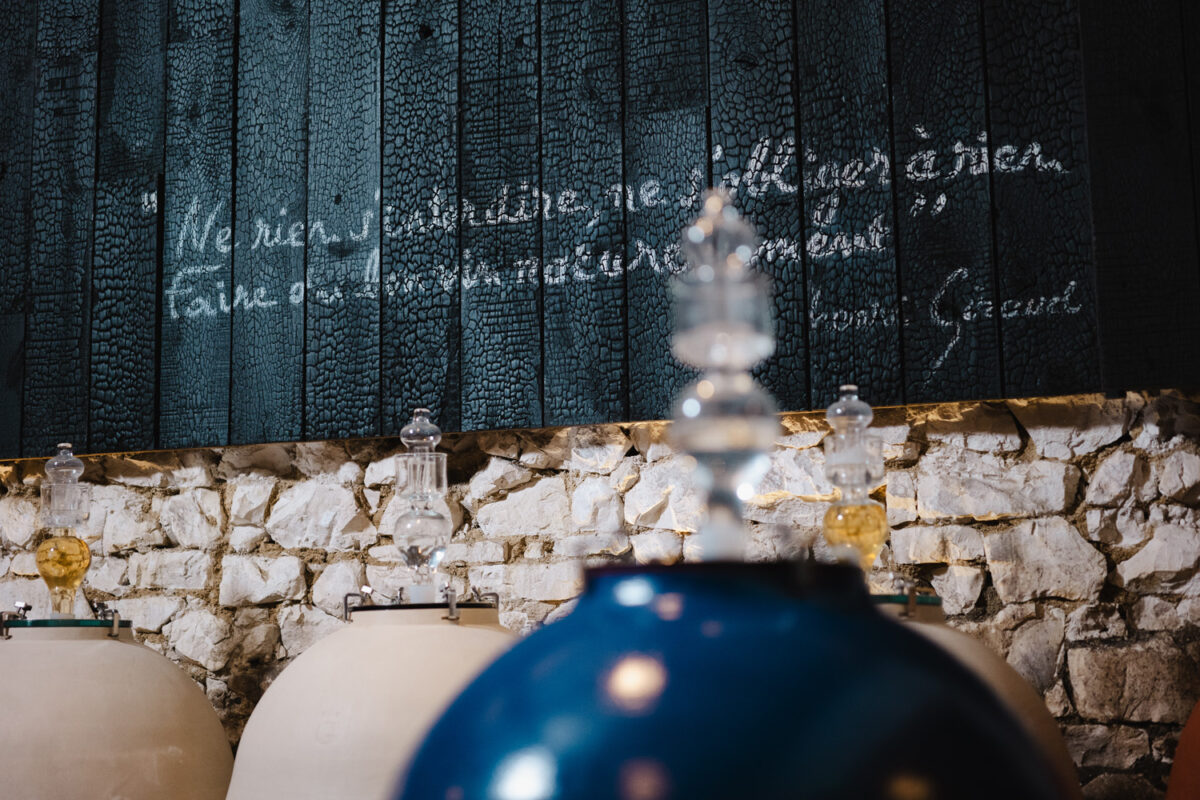 "Ne rien s'interdire, ne s'obliger à rien,
Faire du vin naturellement"
Giraud